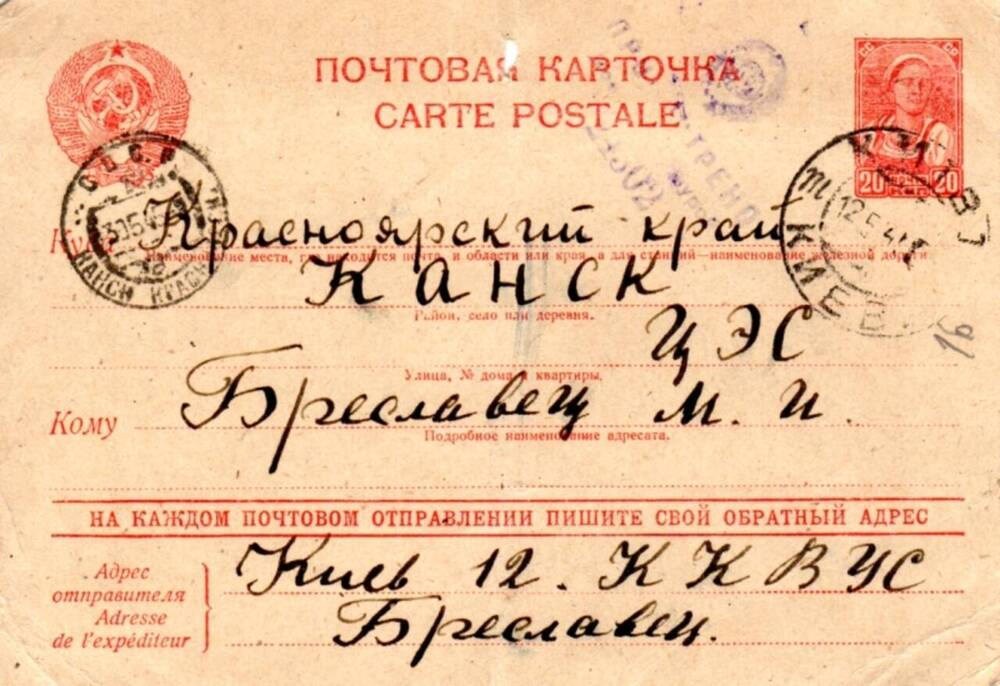 ПОЧТОВАЯ КАРТОЧКА
CARTE POSTALE
СС СР
20 20
КИЕВ
12.5.4
КИЕВ
СССР
КАНСК КРАСН
Куда Красноярский край
Наименование места, где находится почта, и области или края, а для станций—наименование железной дороги
Канск
Район, село или деревня.
ЦЭС
16
Улица, № дома и квартиры.
Кому Бреславец М. И.
Подробное наименование адресата.
НА КАЖДОМ ПОЧТОВОМ ОТПРАВЛЕНИИ ПИШИТЕ СВОЙ ОБРАТНЫЙ АДРЕС
Адрес
отправителя
Adresse
de l'expéditeur
Киев 12. К К В УС
Бреславец.